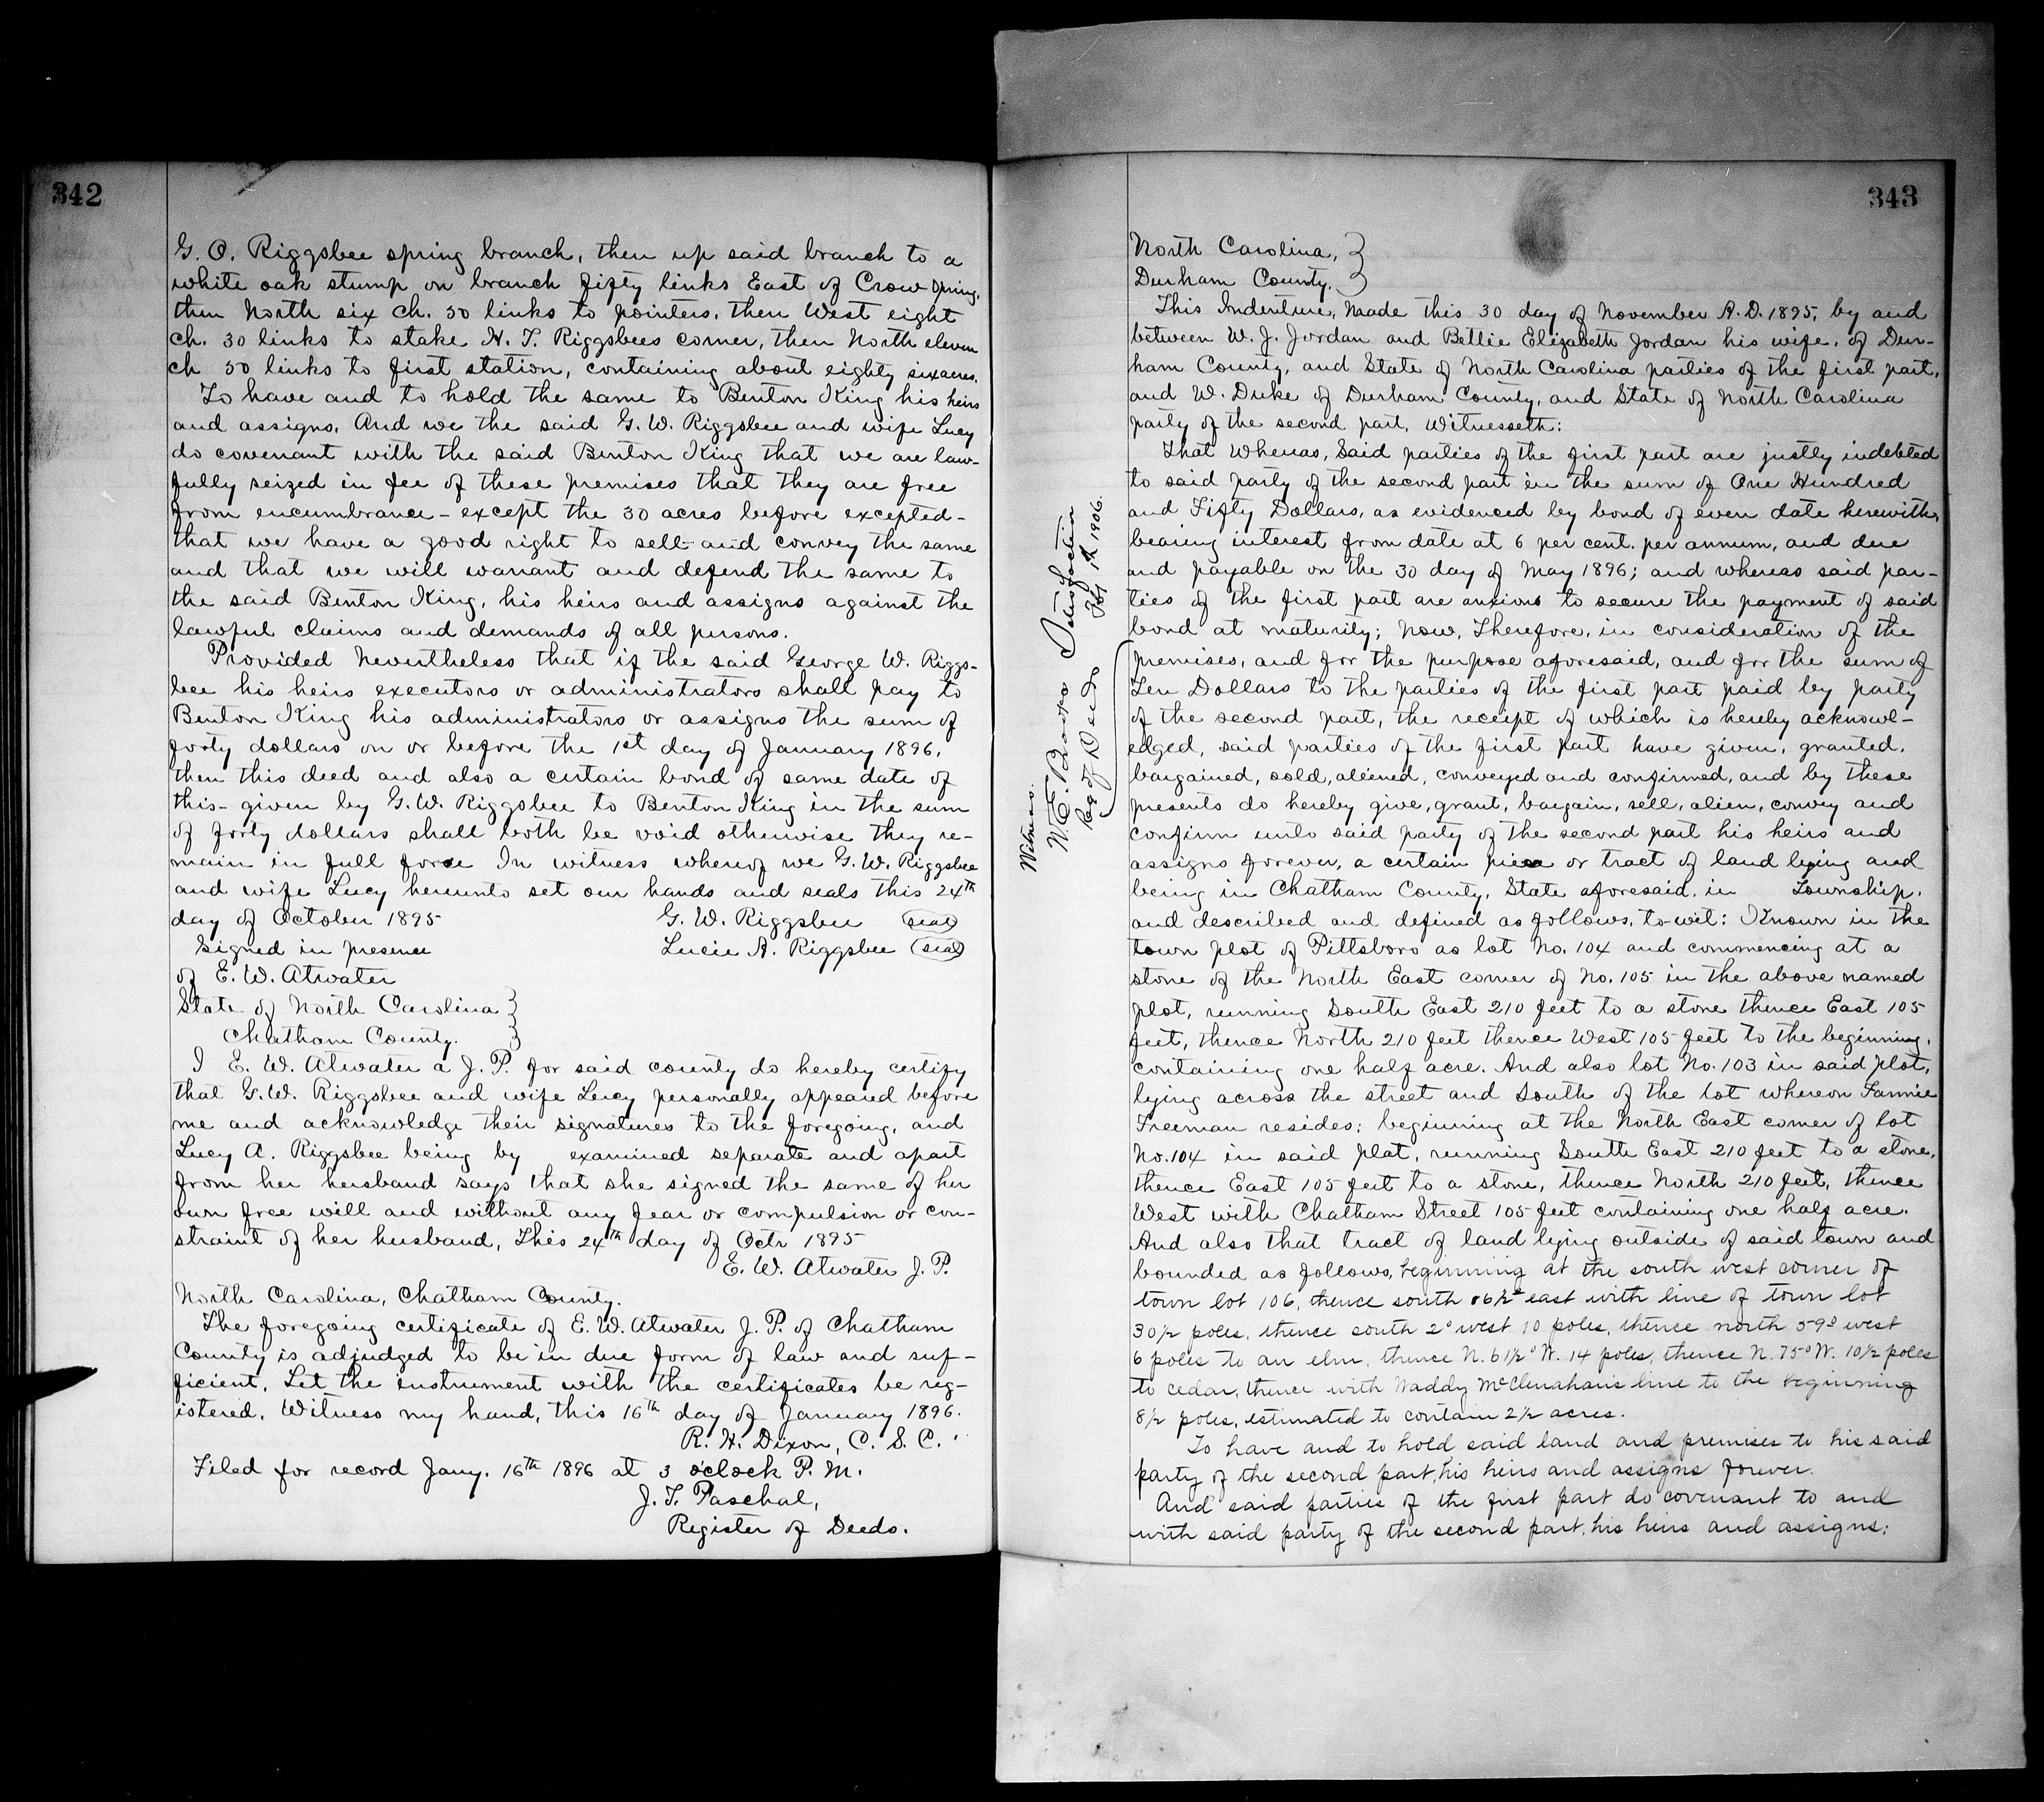 342
G. O. Riggsbee spring branch, then up said branch to a
white oak stump on branch fifty links East of Crow Spring,
then North six ch. 50 links to pointers, then West eight
ch. 30 links to stake H. T. Riggsbees corner, then North eleven
ch 50 links to first station, containing about eighty six acres.
To have and to hold the same to Benton King his heirs
and assigns. And we the said G. W. Riggsbee and wife Lucy
do covenant with the said Benton King that we are law-
fully seized in fee of these premises that they are free
from encumbrance - except the 30 acres before excepted -
that we have a good right to sell and convey the same
and that we will warrant and defend the same to
the said Benton King, his heirs and assigns against the
lawful claims and demands of all persons.
Provided Nevertheless that if the said George W. Riggs-
bee his heirs executors or administrators shall pay to
Benton King his administrators or assigns the sum of
forty dollars on or before the 1st day of January 1896,
then this deed and also a certain bond of same date of
this - given by G. W. Riggsbee to Benton King in the sum
of forty dollars shall both be void otherwise they re-
main in full force In witness whereof we G. W. Riggsbee
and wife Lucy hereunto set our hands and seals this 24th
day of October 1895 G. W. Riggsbee (seal)
Signed in presence Lucie A. Riggsbee (seal)
of E. W. Atwater
State of North Carolina }
Chatham County. }
I E. W. Atwater a J. P. for said county do hereby certify
that G. W. Riggsbee and wife Lucy personally appeared before
me and acknowledge their signatures to the foregoing, and
Lucy A. Riggsbee being by examined separate and apart
from her husband says that she signed the same of her
own free will and without any fear or compulsion or con-
straint of her husband, This 24th day of Octr 1895
E. W. Atwater J. P.
North Carolina, Chatham County.
The foregoing certificate of E. W. Atwater J. P. of Chatham
County is adjudged to be in due form of law and suf-
ficient. Let the instrument with the certificates be reg-
istered. Witness my hand, this 16th day of January 1896.
R. H. Dixon, C. S. C.
Filed for record Jany. 16th 1896 at 3 o'clock P. M.
J. T. Paschal,
Register of Deeds.
343
North Carolina, }
Durham County. }
This Indenture, Made this 30 day of November A. D. 1895, by and
between W. J. Jordan and Bettie Elizabeth Jordan his wife, of Dur-
ham County, and State of North Carolina parties of the first part,
and W. Duke of Durham County, and State of North Carolina
party of the second part, Witnesseth:
That Whereas, Said parties of the first part are justly indebted
to said party of the second part in the sum of One Hundred
and Fifty Dollars, as evidenced by bond of even date herewith,
bearing interest from date at 6 per cent. per annum, and due
and payable on the 30 day of May 1896; and whereas said par-
ties of the first part are anxious to secure the payment of said
bond at maturity; Now, Therefore, in consideration of the
premises, and for the purpose aforesaid, and for the sum of
Ten Dollars to the parties of the first part paid by party
of the second part, the receipt of which is hereby acknowl-
edged, said parties of the first part have given, granted,
bargained, sold, aliened, conveyed and confirmed, and by these
presents do hereby give, grant, bargain, sell, alien, convey and
confirm unto said party of the second part his heirs and
assigns forever, a certain piece or tract of land lying and
being in Chatham County, State aforesaid, in Township,
and described and defined as follows, to-wit: Known in the
town plot of Pittsboro as lot No. 104 and commencing at a
stone of the North East corner of No. 105 in the above named
plot, running South East 210 feet to a stone thence East 105
feet, thence North 210 feet thence West 105 feet to the beginning,
containing one half acre. And also lot No. 103 in said plot,
lying across the street and South of the lot whereon Fannie
Freeman resides; beginning at the North East corner of lot
No. 104 in said plat, running South East 210 feet to a stone,
thence East 105 feet to a stone, thence North 210 feet, thence
West with Chatham Street 105 feet containing one half acre.
And also that tract of land lying outside of said town and
bounded as follows, beginning at the south west corner of
town lot 106, thence south 6½° east with line of town lot
30½ poles, thence south 2° west 10 poles, thence north 59° west
6 poles to an elm, thence N. 61½° W. 14 poles, thence N. 75° W. 10½ poles
to cedar, thence with Waddy McClenahans line to the beginning
8½ poles, estimated to contain 2½ acres.
To have and to hold said land and premises to his said
party of the second part, his heirs and assigns forever.
And said parties of the first part do covenant to and
with said party of the second part, his heirs and assigns;
Satisfaction
1st 1906.
Witness.
W. E. Brooks
Reg of Deeds